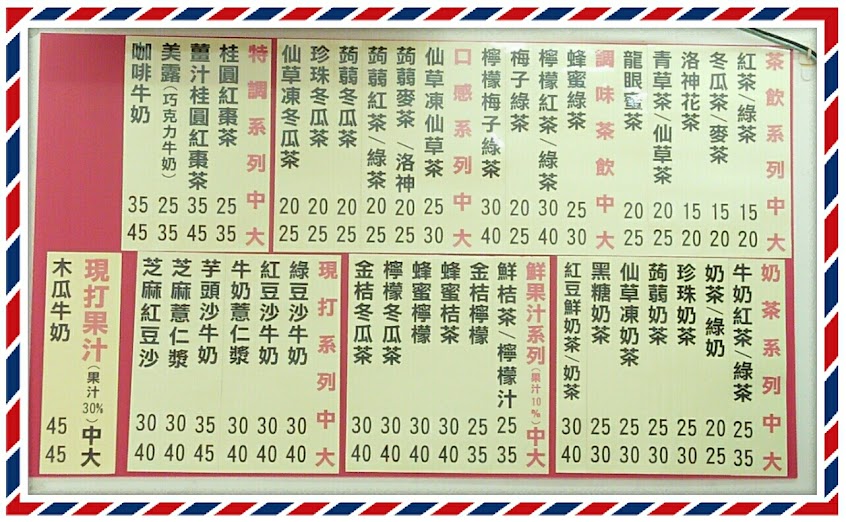 茶飲系列中大
紅茶/綠茶 15 20
冬瓜茶/麥茶 15 20
洛神花茶 15 20
青草茶/仙草茶 20 25
龍眼蜜茶 20 25
調味茶飲中大
蜂蜜綠茶 25 30
檸檬紅茶/綠茶 30 40
梅子綠茶 20 25
檸檬梅子綠茶 30 40
口感系列中大
仙草凍仙草茶 25 30
蒟蒻麥茶/洛神 20 25
蒟蒻紅茶/綠茶 20 25
蒟蒻冬瓜茶 20 25
珍珠冬瓜茶 20 25
仙草凍冬瓜茶 20 25
特調系列中大
桂圓紅棗茶 25 35
薑汁桂圓紅棗茶 35 45
美露(巧克力牛奶) 25 35
咖啡牛奶 35 45
奶茶系列中大
牛奶紅茶/綠茶 25 35
奶茶/綠奶 20 25
珍珠奶茶 25 30
蒟蒻奶茶 25 30
仙草凍奶茶 25 30
黑糖奶茶 25 30
紅豆鮮奶茶/奶茶 30 40
鮮果汁系列(果汁10%)中大
鮮桔茶/檸檬汁 25 35
金桔檸檬 25 35
蜂蜜桔茶 30 40
蜂蜜檸檬 30 40
檸檬冬瓜茶 30 40
金桔冬瓜茶 30 40
現打系列中大
綠豆沙牛奶 30 40
紅豆沙牛奶 30 40
牛奶薏仁漿 30 40
芋頭沙牛奶 35 45
芝麻薏仁漿 30 40
芝麻紅豆沙 30 40
現打果汁(果汁30%)中大
木瓜牛奶 45 45